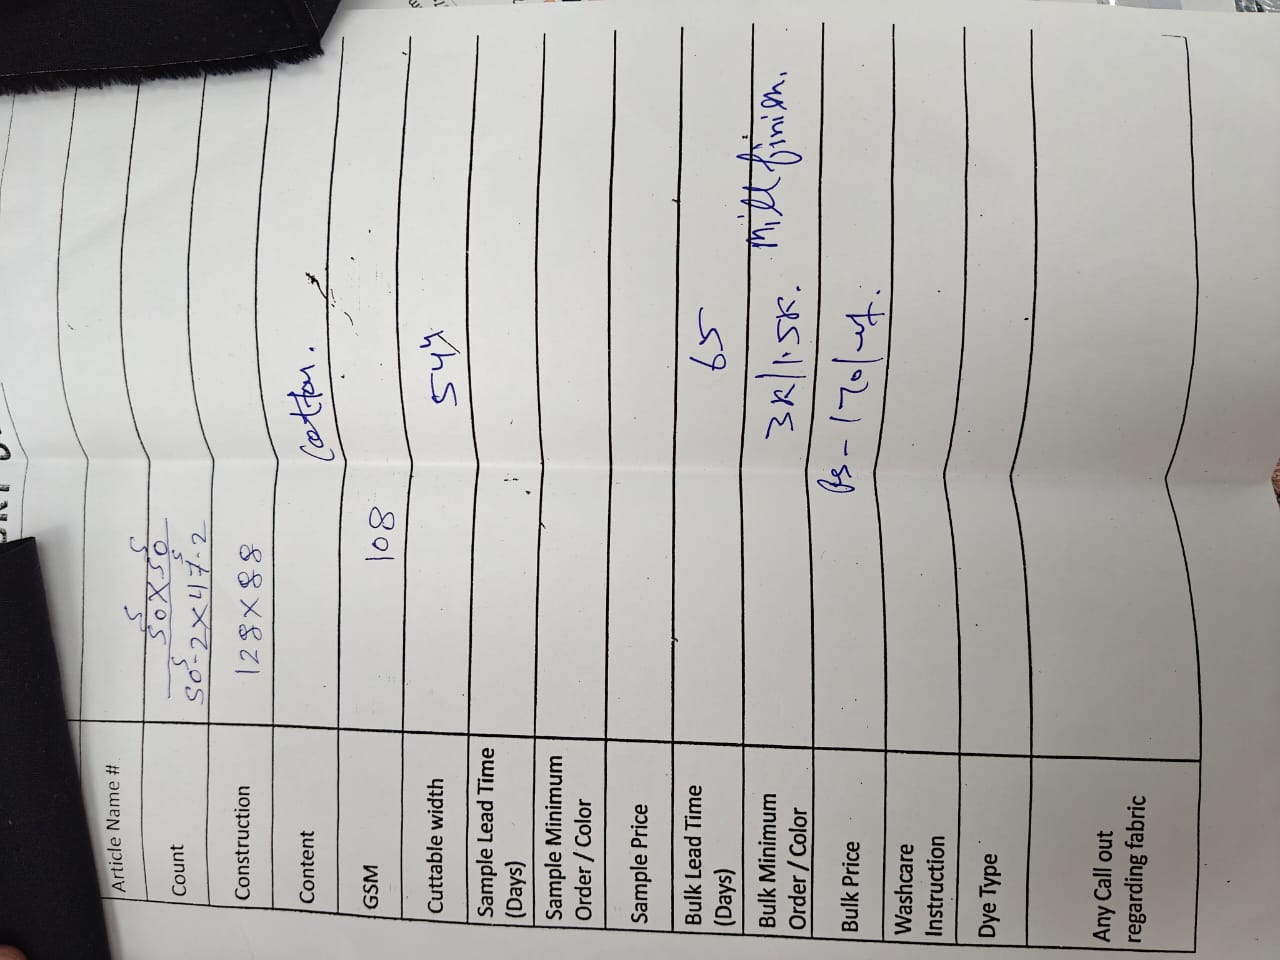 Article Name #
Count 50ˢ X 50ˢ
50ˢ-2 X 47ˢ.2
Construction 128 X 88
Content Cotton.
GSM 108
Cuttable width 54"
Sample Lead Time
(Days)
Sample Minimum
Order / Color
Sample Price
Bulk Lead Time
(Days) 65
Bulk Minimum
Order / Color 3K/1.5K. Mill finish.
Bulk Price Rs-170/
Washcare
Instruction
Dye Type
Any Call out
regarding fabric